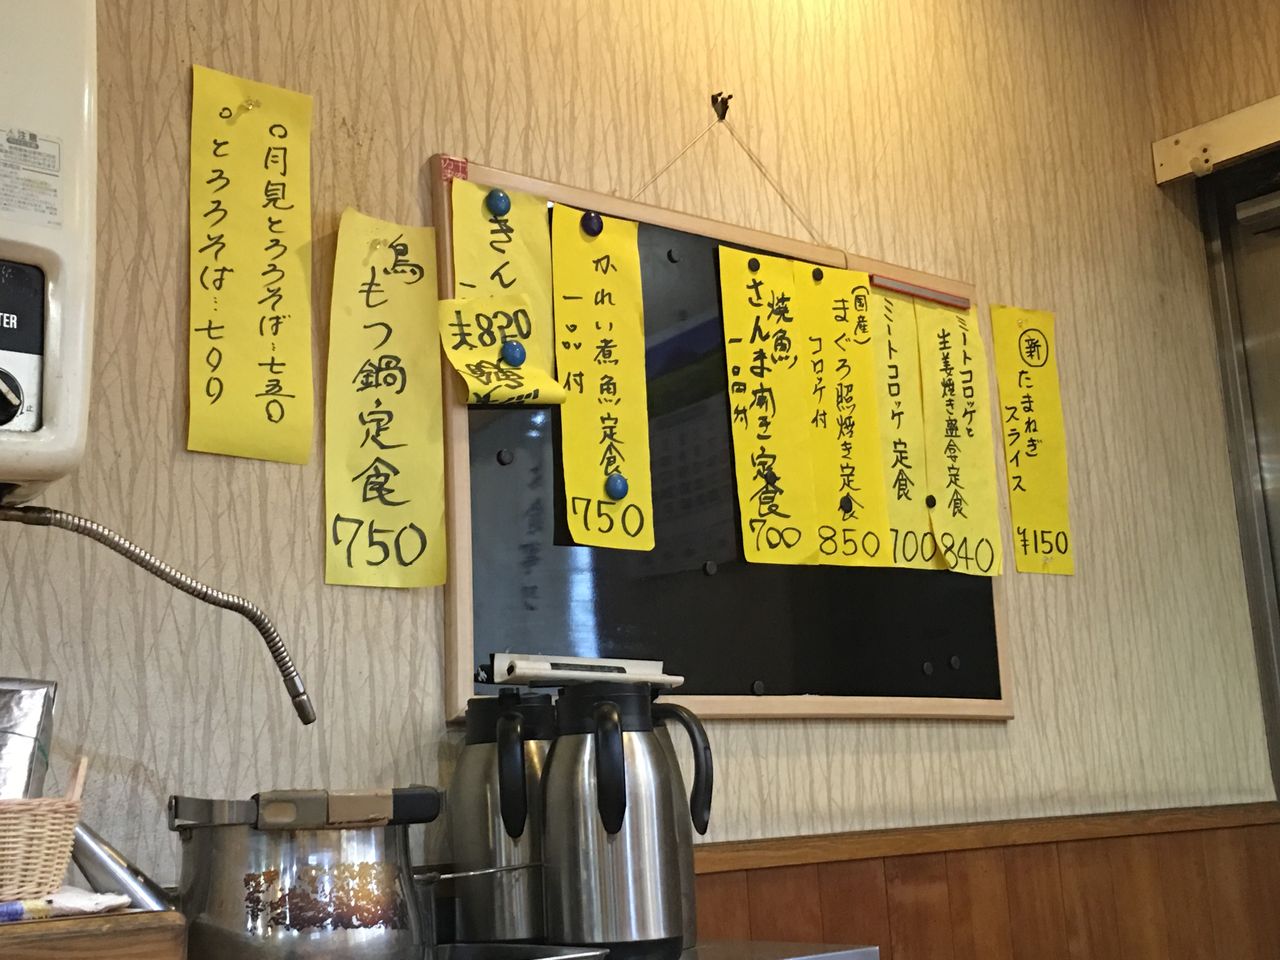 注意
○月見とろろそば…七五〇
○とろろそば…七〇〇
鳥もつ鍋定食
750
きん
夫820
かれい煮魚定食
一品付
750
焼魚
さんま開き定食
一品付
700
(国産)
まぐろ照焼き定食
コロッケ付
850
ミートコロッケ定食
700
ミートコロッケと
生姜焼き盛合定食
840
新たまねぎ
スライス
¥150